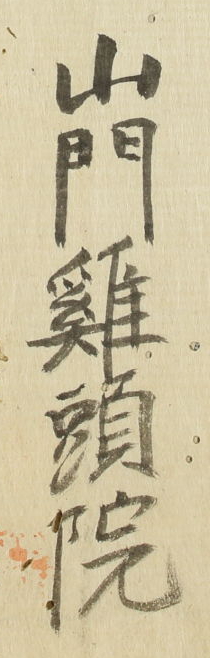 山門雞頭院